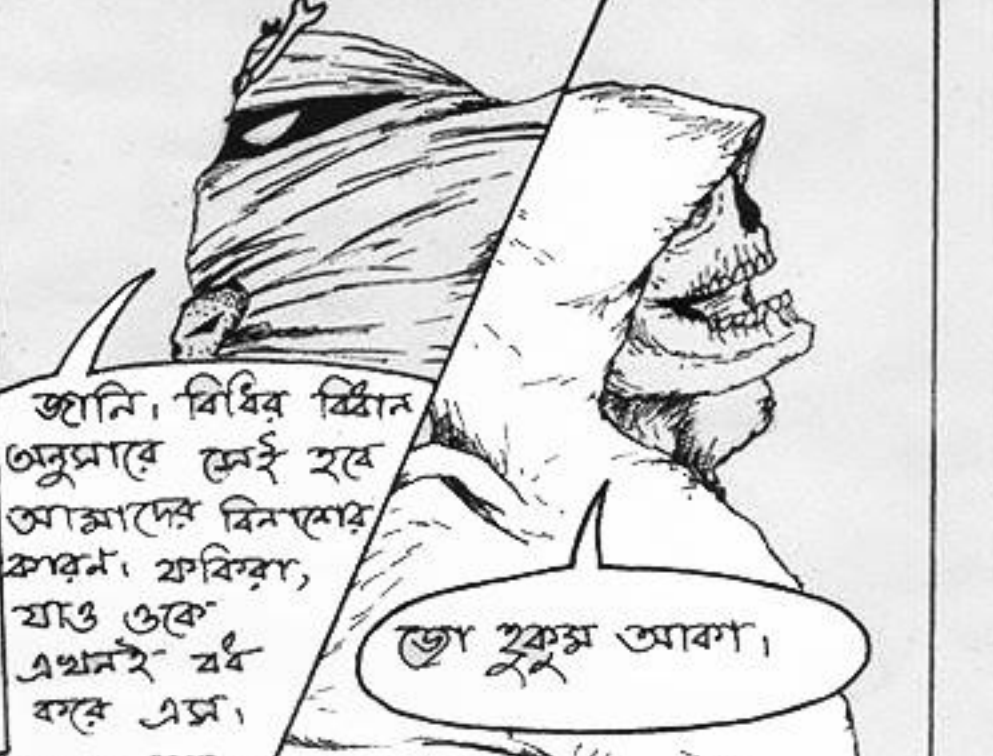 জানি। বিধির বিধান
অনুসারে সেই হবে
আমাদের বিনাশের
কারন। ফকিরা,
যাও ওকে
এখনই বধ
করে এস।
জো হুকুম আকা।